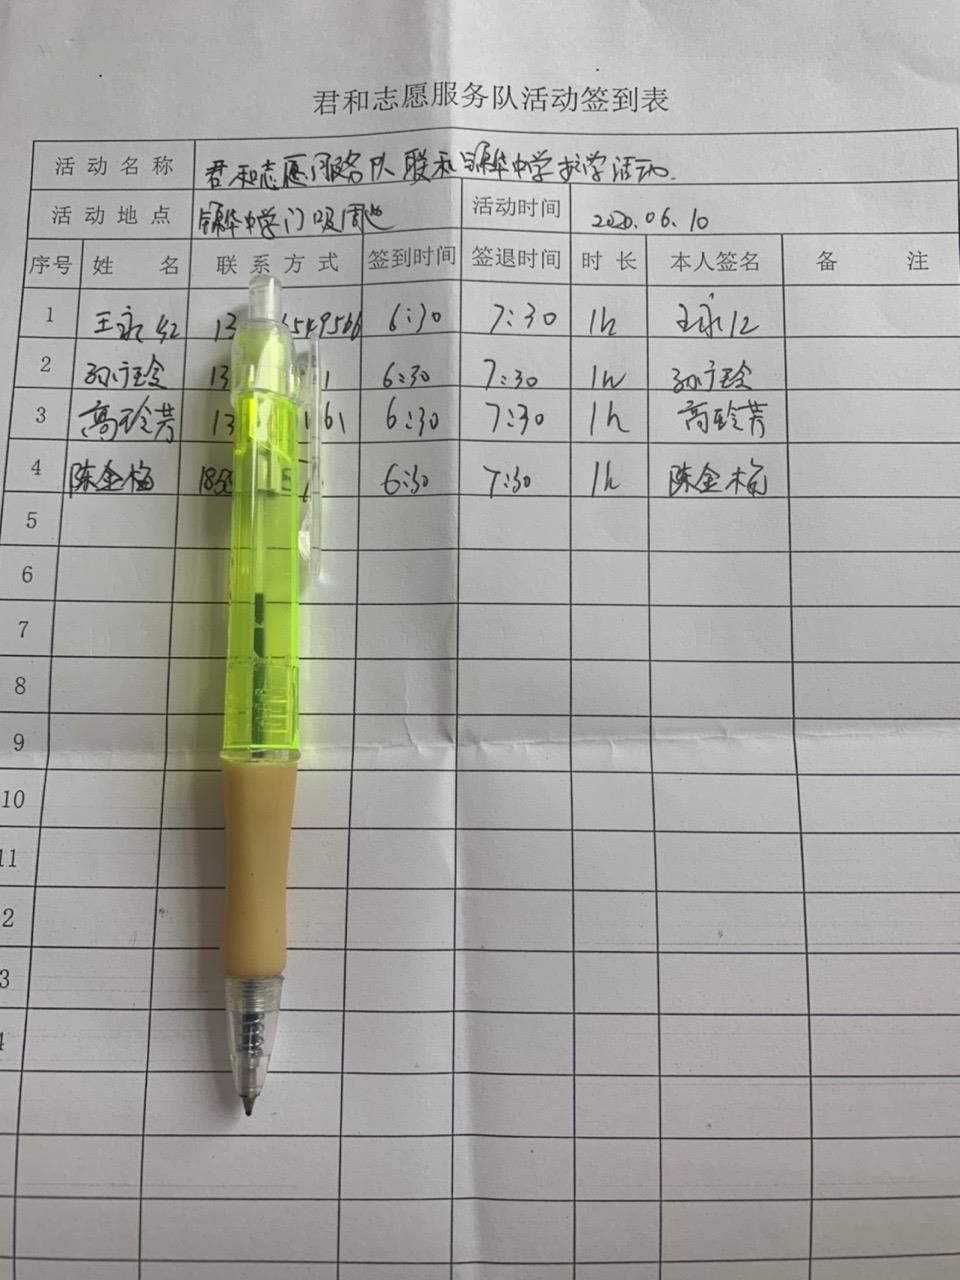 君和志愿服务队活动签到表
活动名称 君和志愿服务队联和锦华中学护学活动.
活动地点 锦华中学门口周边 活动时间 2020.06.10
序号 姓名 联系方式 签到时间 签退时间 时长 本人签名 备注
1 王永红 13 6:30 7:30 1h 王永红
2 13 1 6:30 7:30 1h
3 高玲芳 13 161 6:30 7:30 1h 高玲芳
4 陈金梅 185 6:30 7:30 1h 陈金梅
5
6
7
8
9
10
11
2
3
4